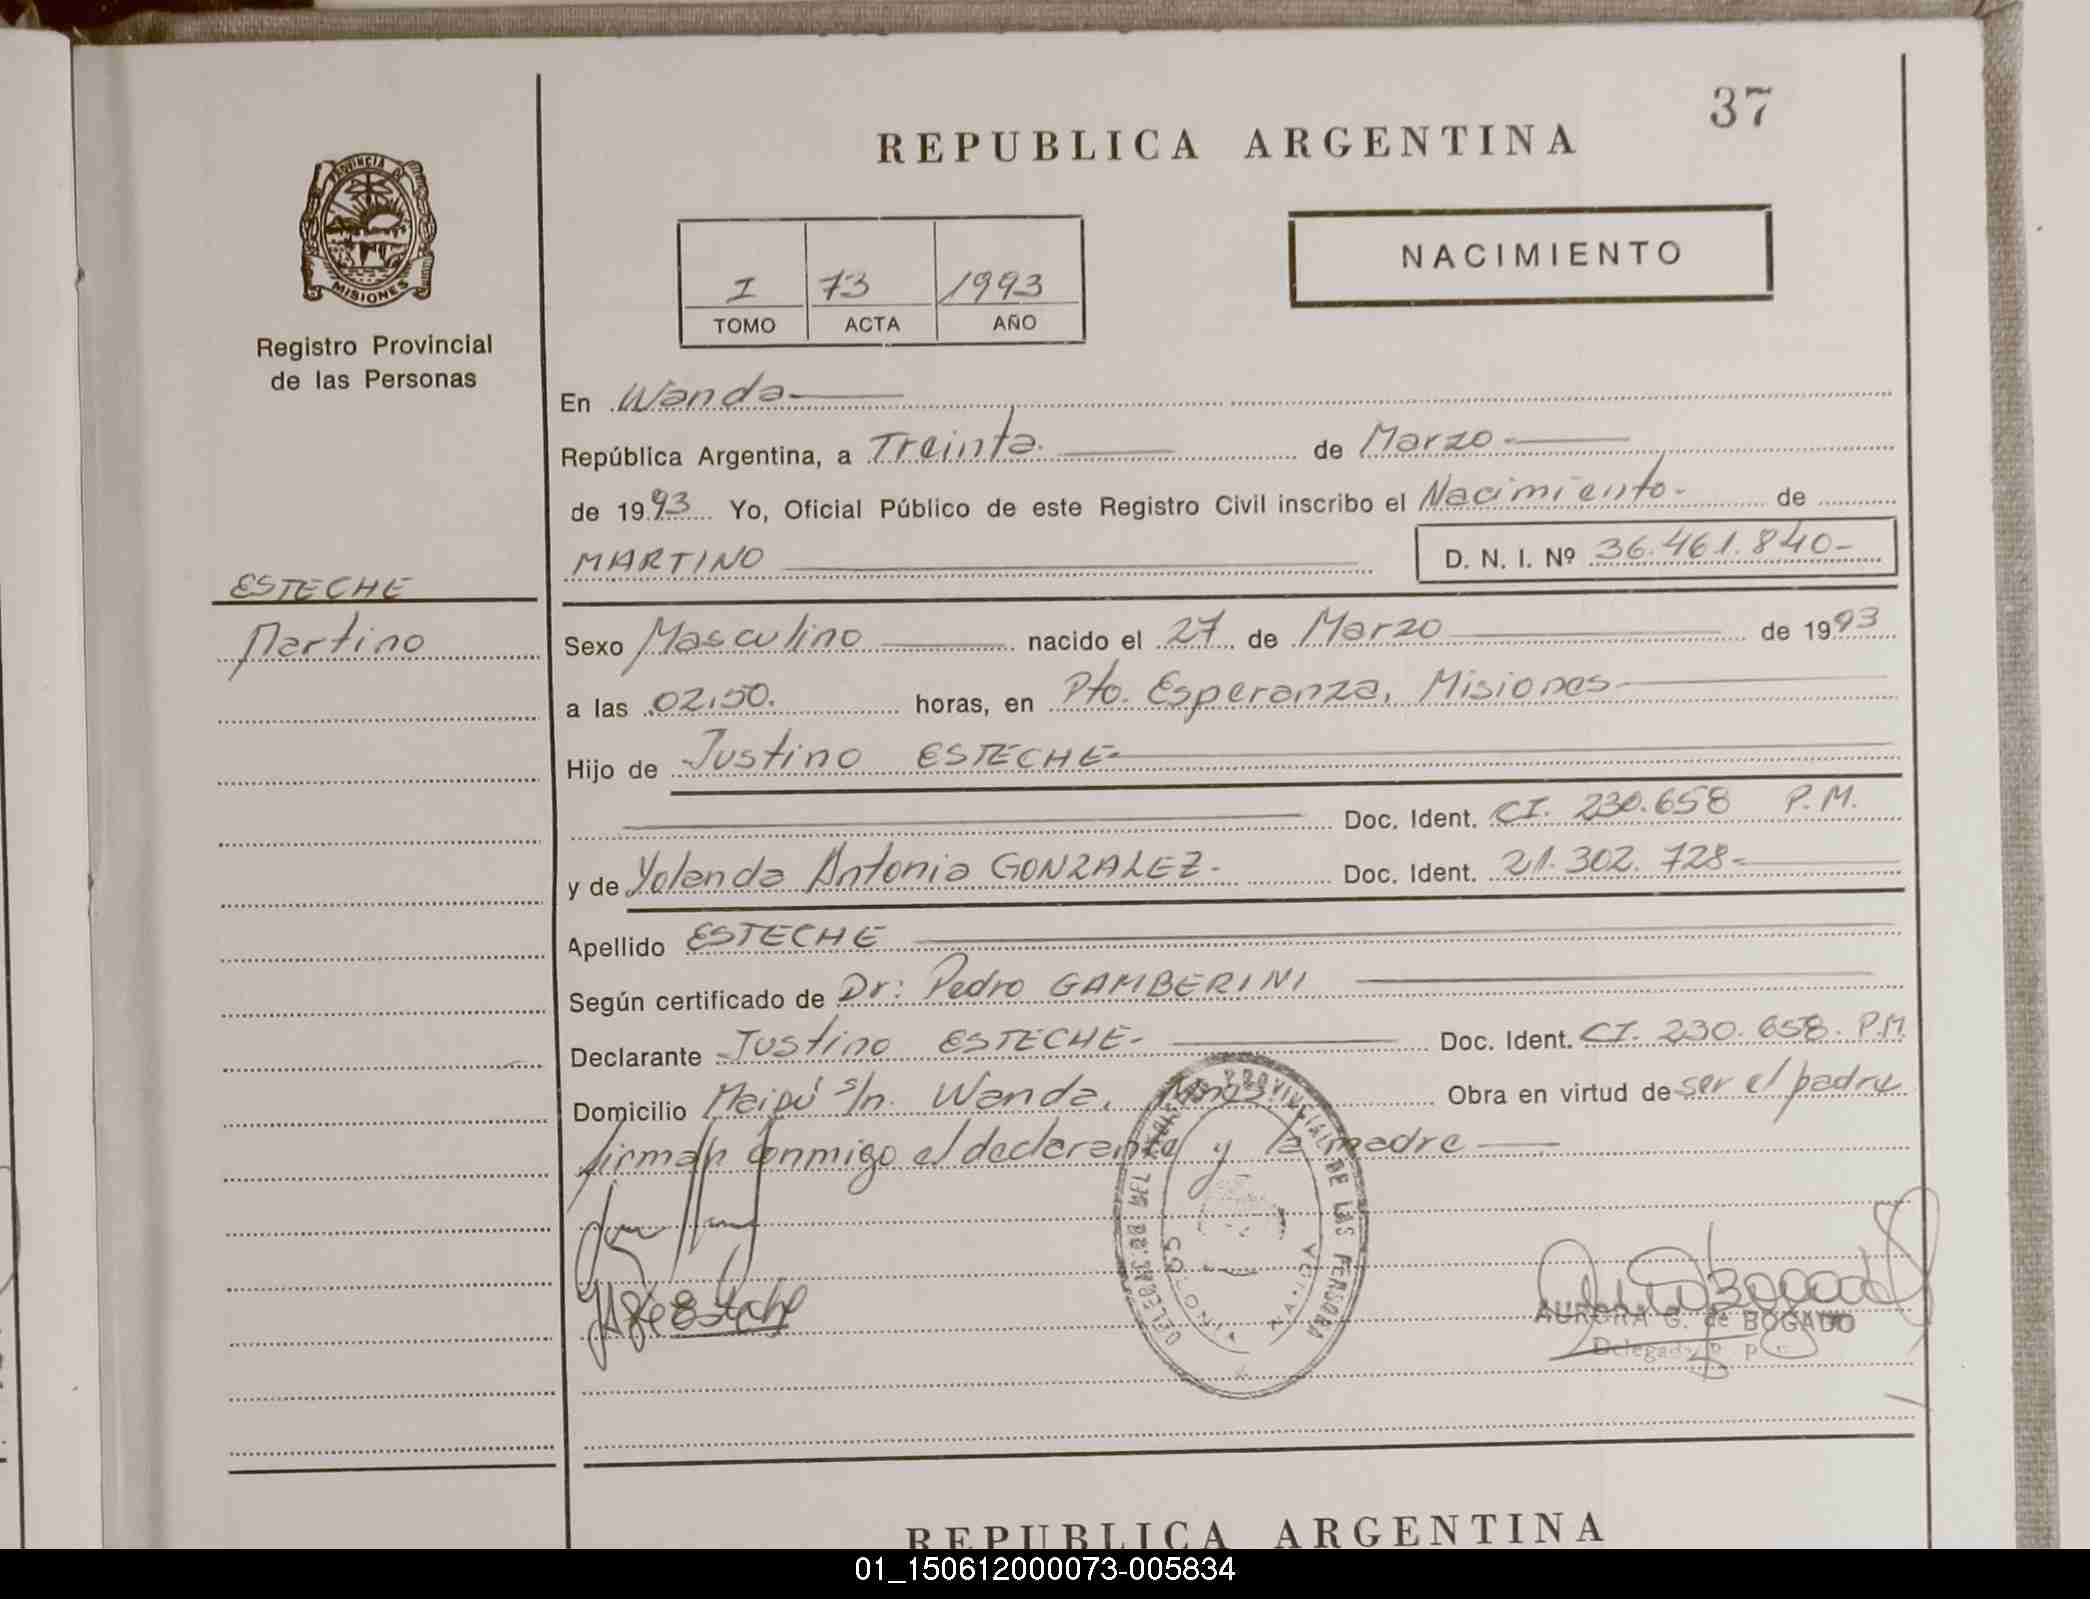 37
REPUBLICA ARGENTINA
PROVINCIA DE
MISIONES
Registro Provincial
de las Personas
NACIMIENTO
I 73 1993
TOMO ACTA AÑO
En Wanda
República Argentina, a Treinta. de Marzo
de 1993 Yo, Oficial Público de este Registro Civil inscribo el Nacimiento de
MARTINO D. N. I. Nº 36.461.840
ESTECHE
Martino
Sexo Masculino nacido el 27 de Marzo de 1993
a las 02,50. horas, en Pto. Esperanza, Misiones
Hijo de Justino ESTECHE
Doc. Ident. CI. 230.658 P.M.
y de Yolanda Antonia GONZALEZ Doc. Ident. 21.302.728
Apellido ESTECHE
Según certificado de Dr: Pedro GAMBERINI
Declarante Justino ESTECHE Doc. Ident. CI. 230.658. P.M.
Domicilio Maipú s/n. Wanda, Mnes Obra en virtud de ser el padre
firman conmigo el declarante y la madre
PROVINCIAL DE LAS PERSONA
AURORA G. de BOGADO
REPUBLICA ARGENTINA
01_150612000073-005834